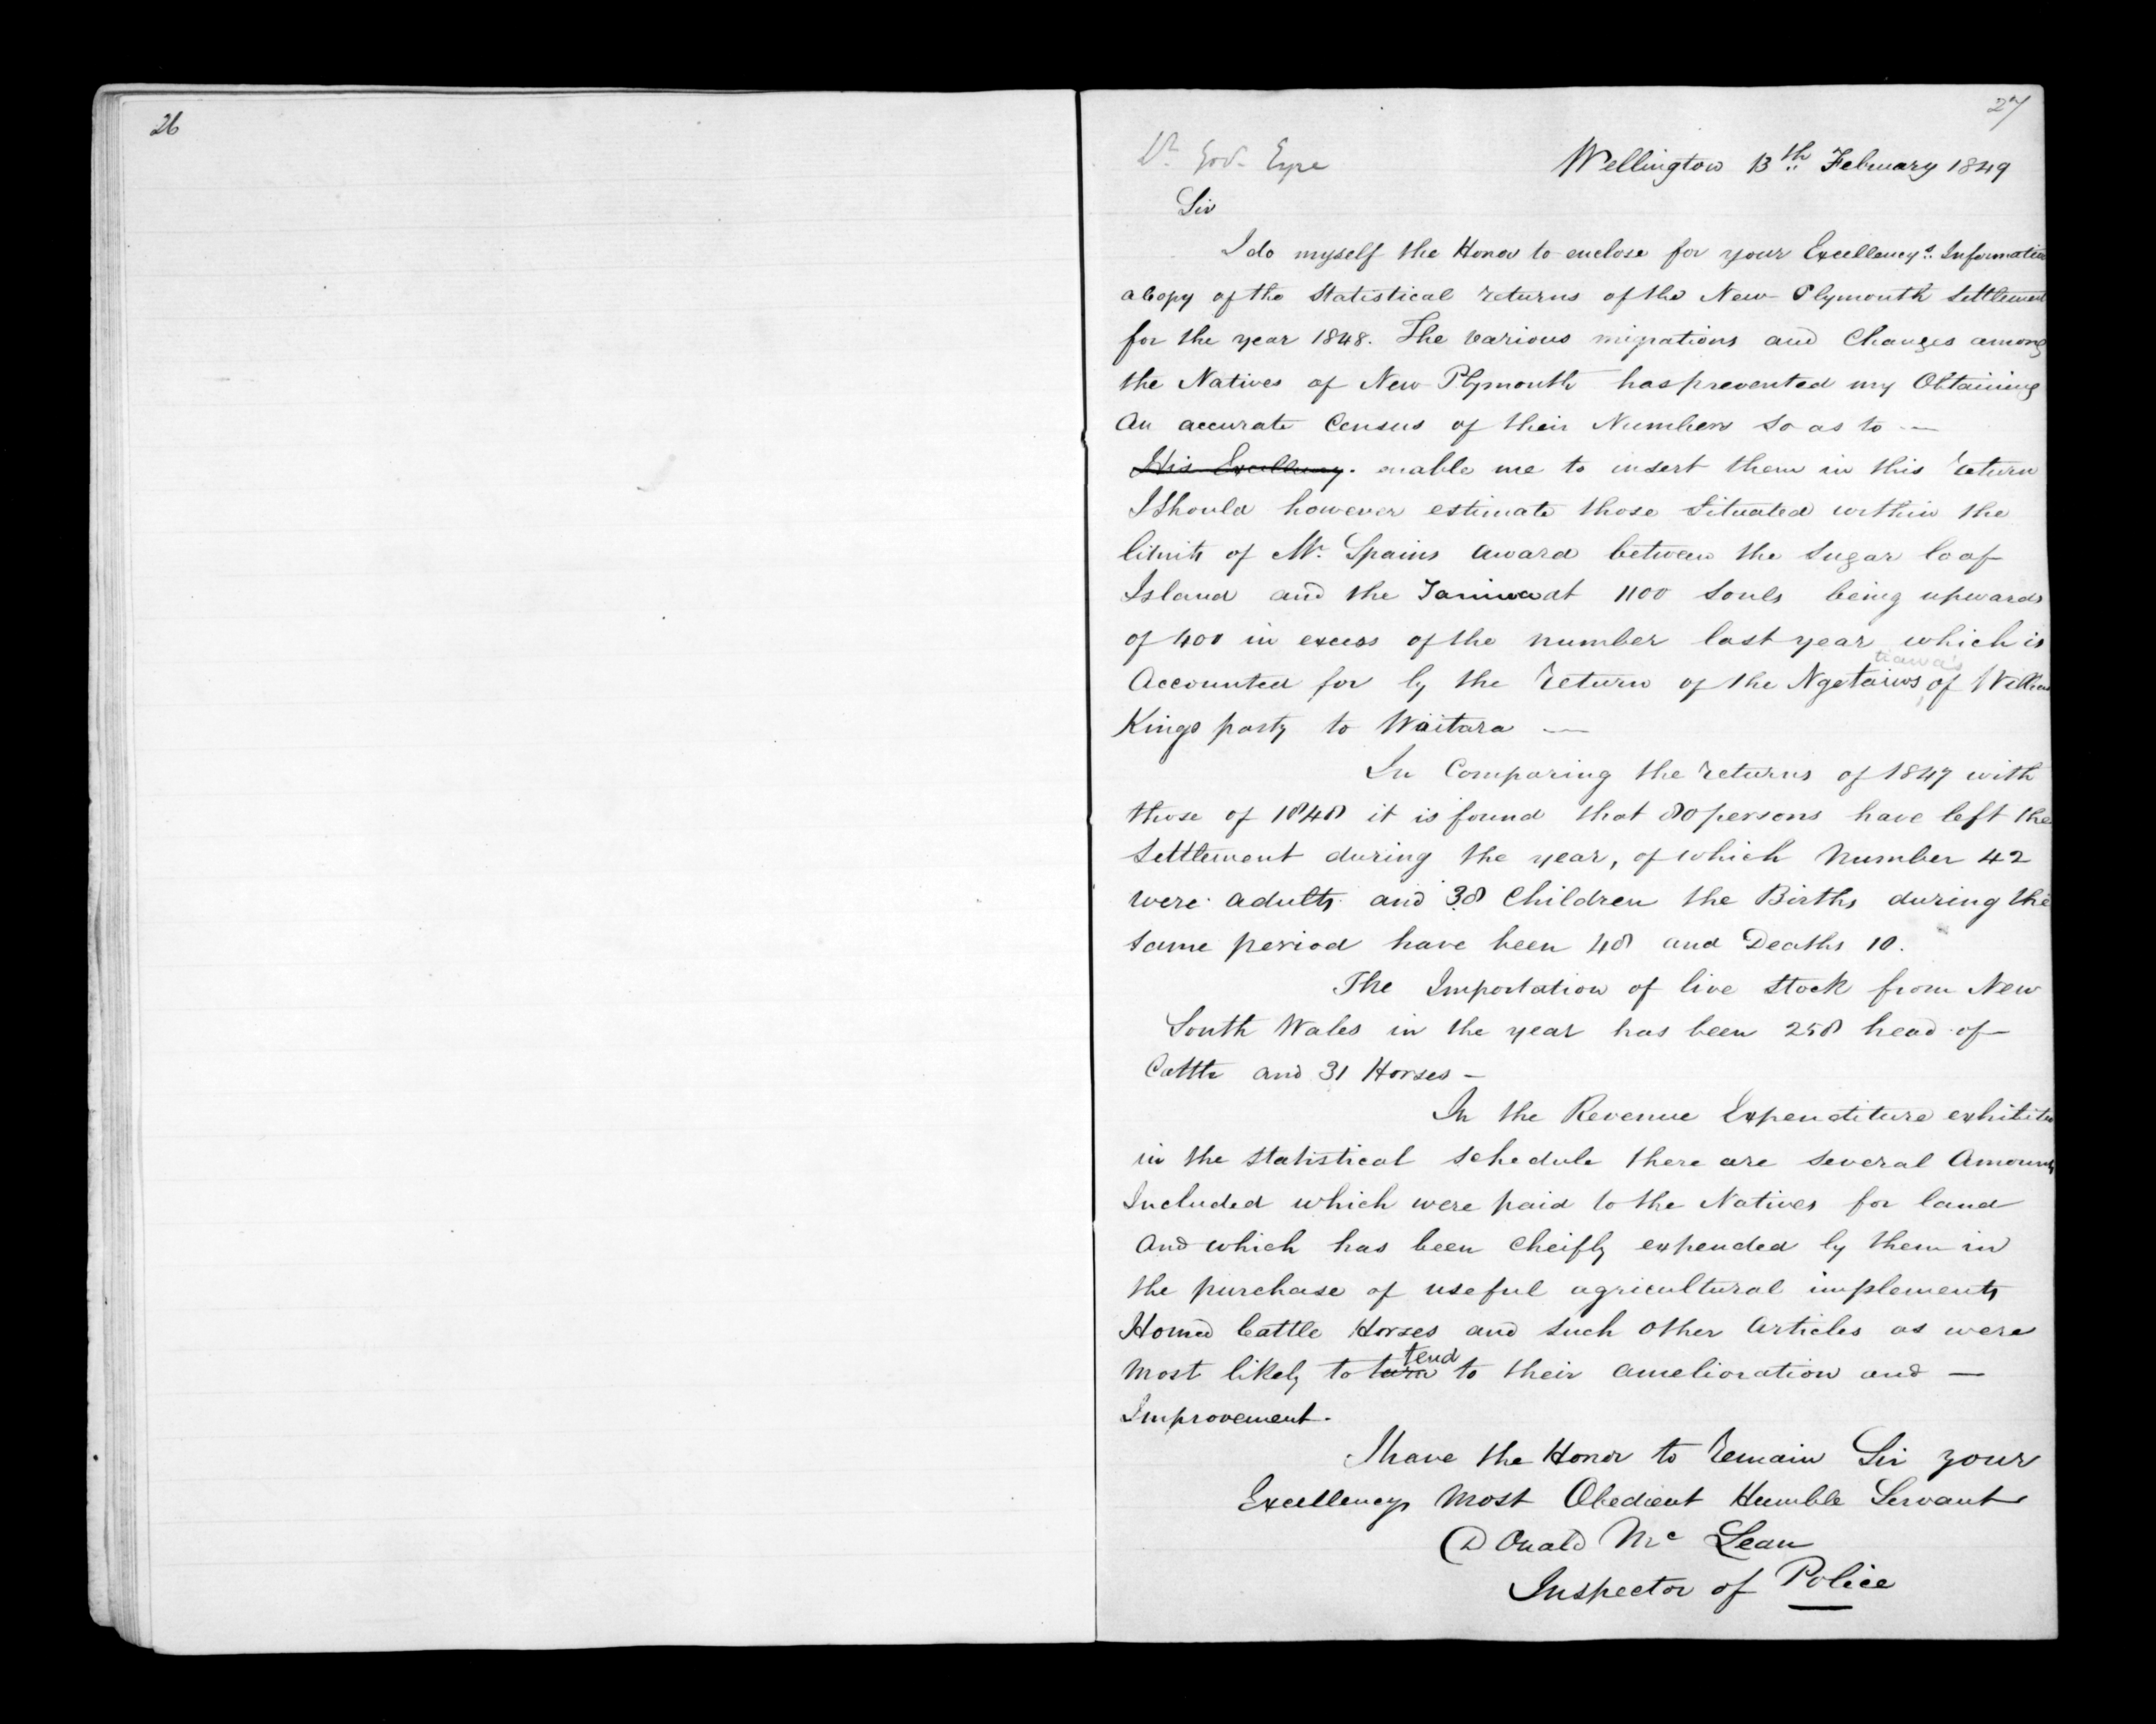 26
27
Lt. Gov. Eyre
Wellington 13th February 1849
Sir
I do myself the Honor to enclose for your Excellency's Information
a Copy of the Statistical returns of the New Plymouth Settlement
for the year 1848. The various migrations and Changes among
the Natives of New Plymouth has prevented my Obtaining
An accurate Census of their Numbers so as to —
His Excellency. enable me to insert them in this return
I Should however estimate those Situated within the
limits of Mr. Spains award between the Sugar loaf
Island and the Taniwa at 1100 Souls being upwards
of 400 in excess of the number last year which is
tiawa's
Accounted for by the return of the Ngataiws, of William
Kings party to Waitara —
In Comparing the returns of 1847 with
those of 1848 it is found that 80 persons have left the
Settlement during the year, of which Number 42
were adults and 38 Children the Births during the
same period have been 48 and Deaths 10.
The Importation of live Stock from New
South Wales in the year has been 258 head of
Cattle and 31 Horses —
In the Revenue Expenditure exhibited
in the Statistical Schedule there are several Amounts
Included which were paid to the Natives for land
And which has been Cheifly expended by them in
the purchase of useful agricultural implements
Horned Cattle Horses and such other Articles as were
tend
Most likely to turn to their amelioration and —
Improvement.
I have the Honor to remain Sir your
Excellencys Most Obedient Humble Servant
Donald Mc Lean
Inspector of Police